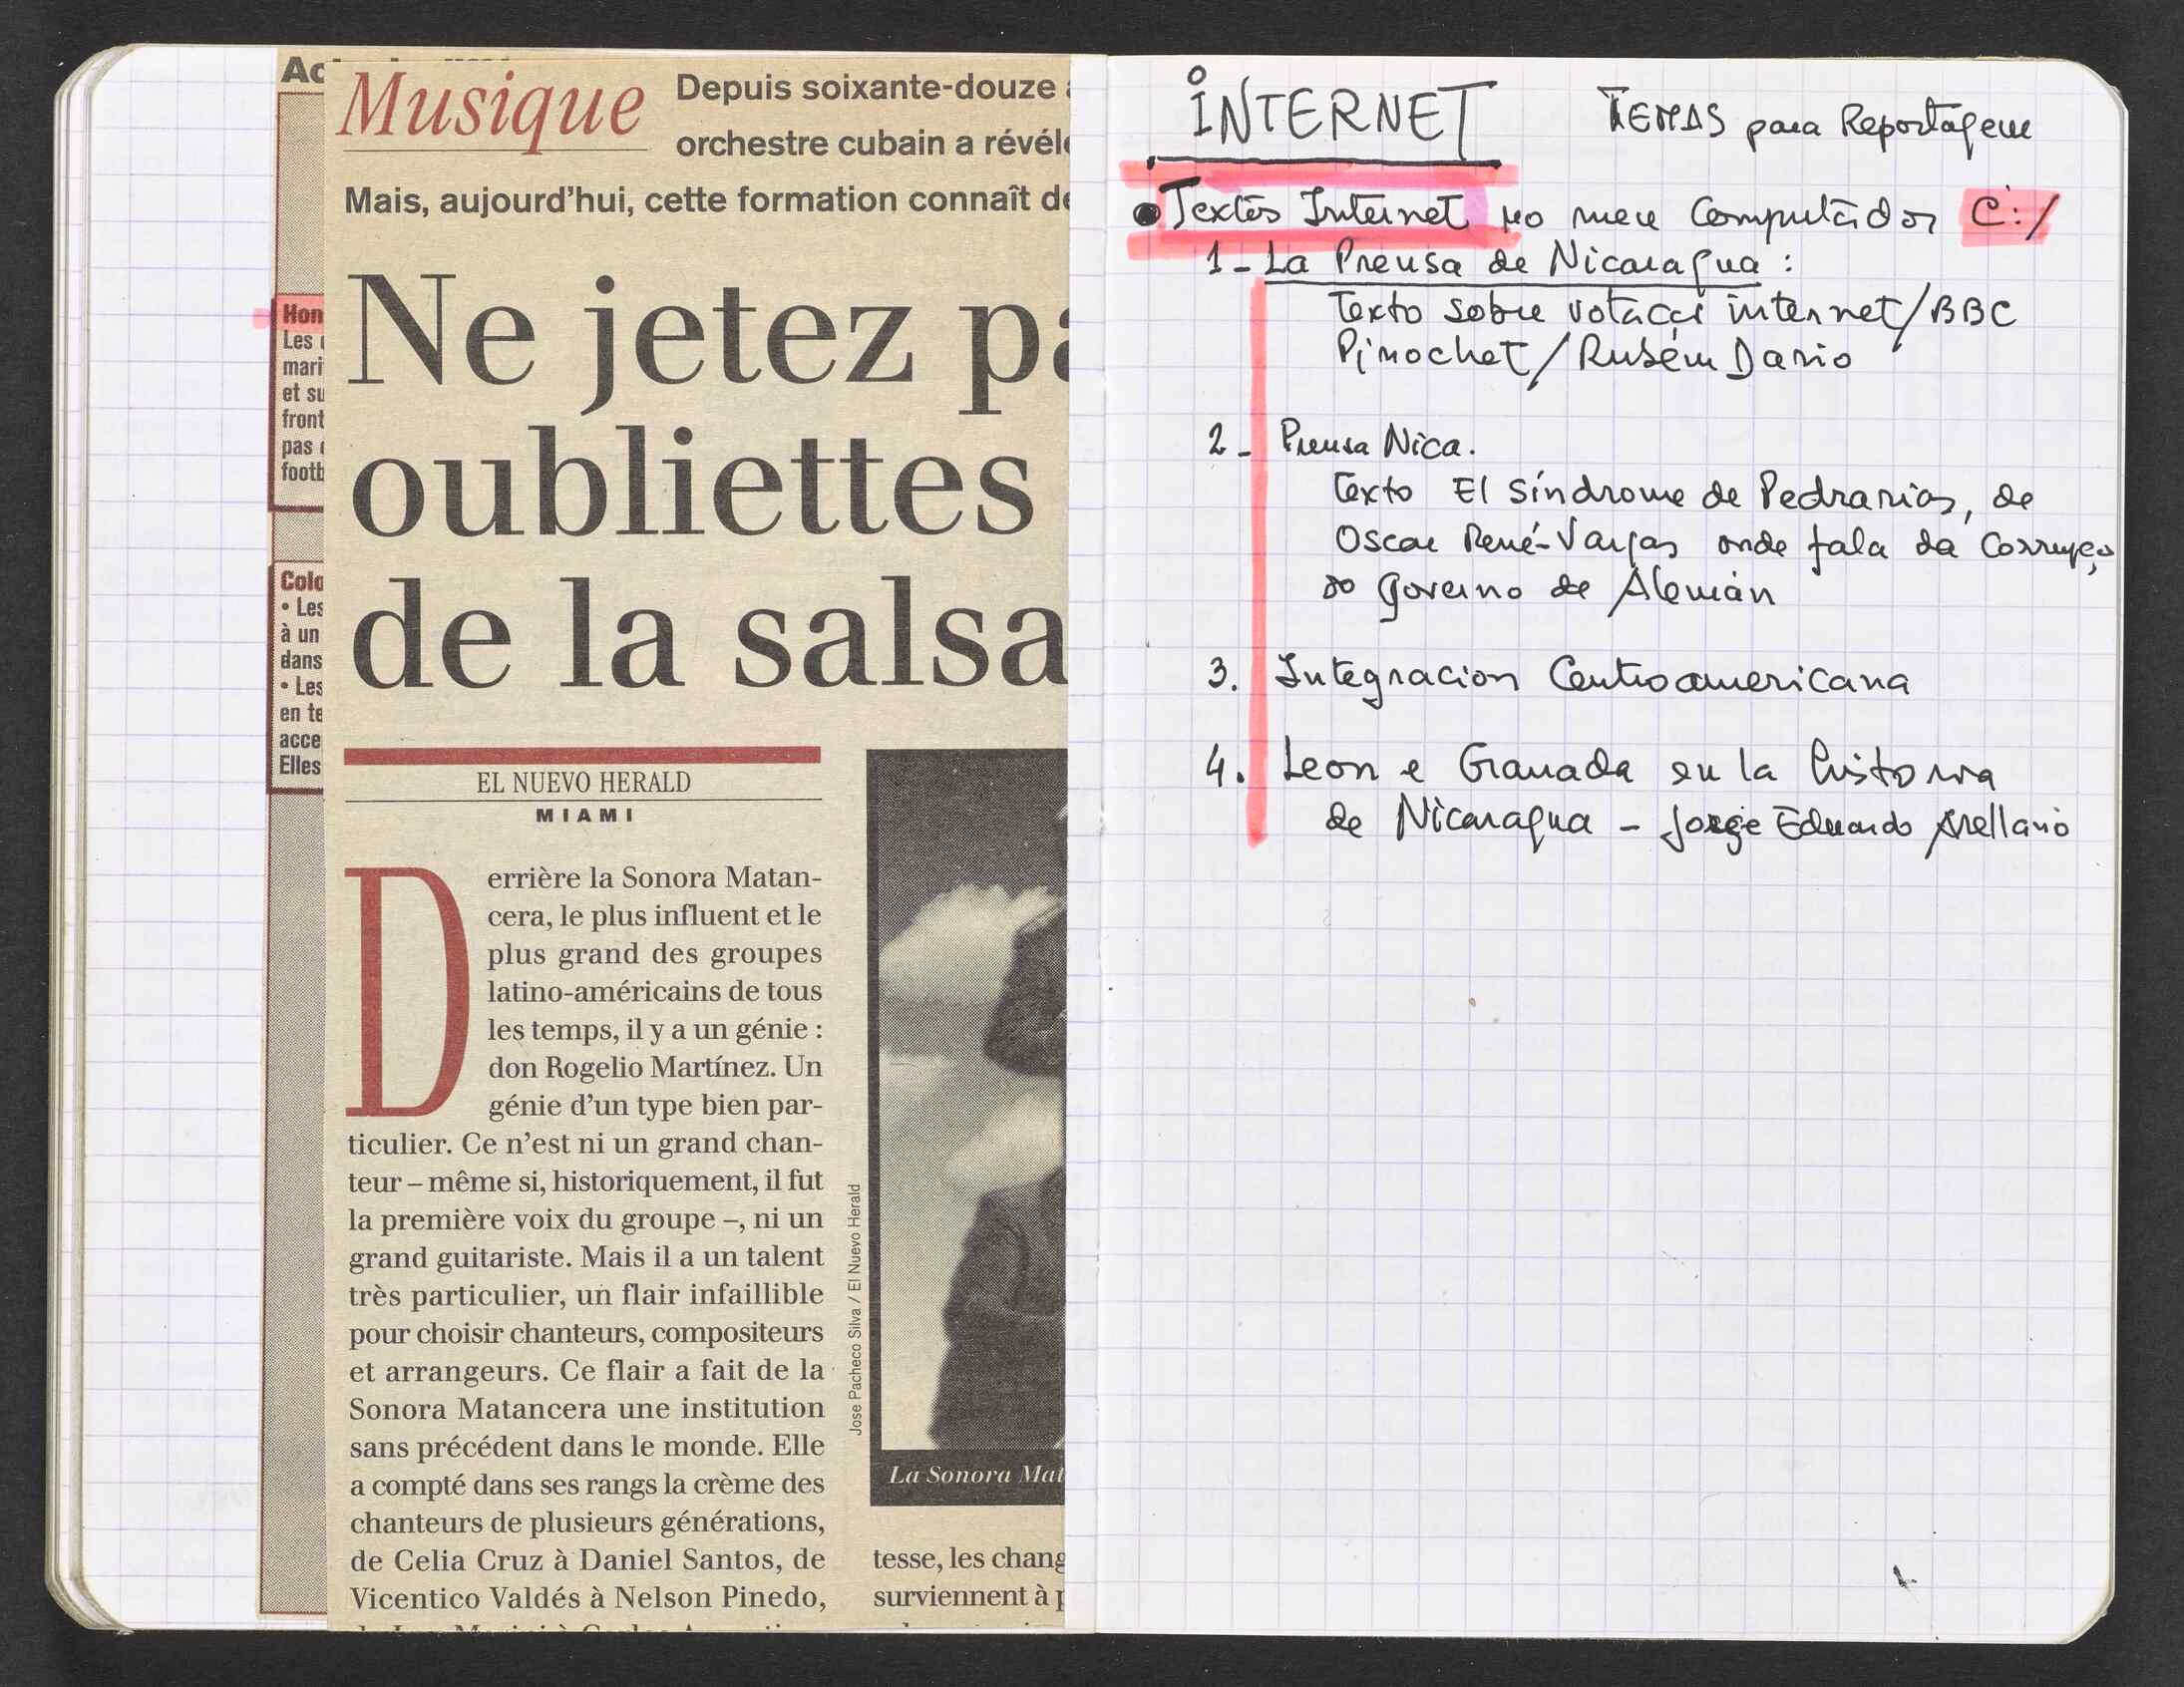 Hon
Les
mari
et su
front
pas
footb
Colo
• Les
à un
dans
• Les
en te
acce
Elles
Musique
Depuis soixante-douze
orchestre cubain a révél
Mais, aujourd'hui, cette formation connaît de
Ne jetez pa
oubliettes
de la salsa
EL NUEVO HERALD
MIAMI
Derrière la Sonora Matan-
cera, le plus influent et le
plus grand des groupes
latino-américains de tous
les temps, il y a un génie :
don Rogelio Martínez. Un
génie d'un type bien par-
ticulier. Ce n'est ni un grand chan-
teur – même si, historiquement, il fut
la première voix du groupe –, ni un
grand guitariste. Mais il a un talent
très particulier, un flair infaillible
pour choisir chanteurs, compositeurs
et arrangeurs. Ce flair a fait de la
Sonora Matancera une institution
sans précédent dans le monde. Elle
a compté dans ses rangs la crème des
chanteurs de plusieurs générations,
de Celia Cruz à Daniel Santos, de
Vicentico Valdés à Nelson Pinedo,
Jose Pacheco Silva / El Nuevo Herald
La Sonora Mat
tesse, les chang
surviennent à p
INTERNET
TEMAS para Reportagem
• Textos Internet no meu Computador C:/
1 - La Prensa de Nicaragua :
Texto sobre votacçi internet/BBC
Pinochet/Rubém Dario
2 - Prensa Nica.
Texto El síndrome de Pedrarias, de
Oscar René-Vargas onde fala da Corrupço
do governo de Alemán
3. Integracion Centroamericana
4. Leon e Granada en la historia
de Nicaragua - Jorge Eduardo Arellano